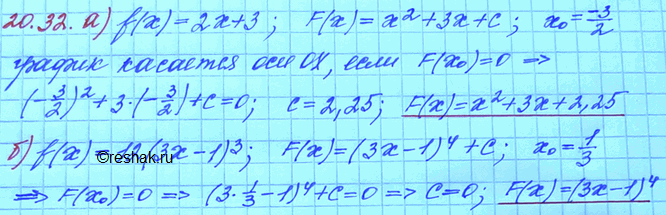 20.32. а) f(x) = 2x+3; F(x) = x² + 3x + c; x₀ = -3/2
график касается оси OX, если F(x₀) = 0 ⇒
(-3/2)² + 3·(-3/2) + c = 0; c = 2,25; F(x) = x² + 3x + 2,25
б) f(x) = 12(3x-1)³; F(x) = (3x-1)⁴ + C; x₀ = 1/3
©reshak.ru
⇒ F(x₀) = 0 ⇒ (3·1/3 - 1)⁴ + C = 0 ⇒ C = 0; F(x) = (3x-1)⁴